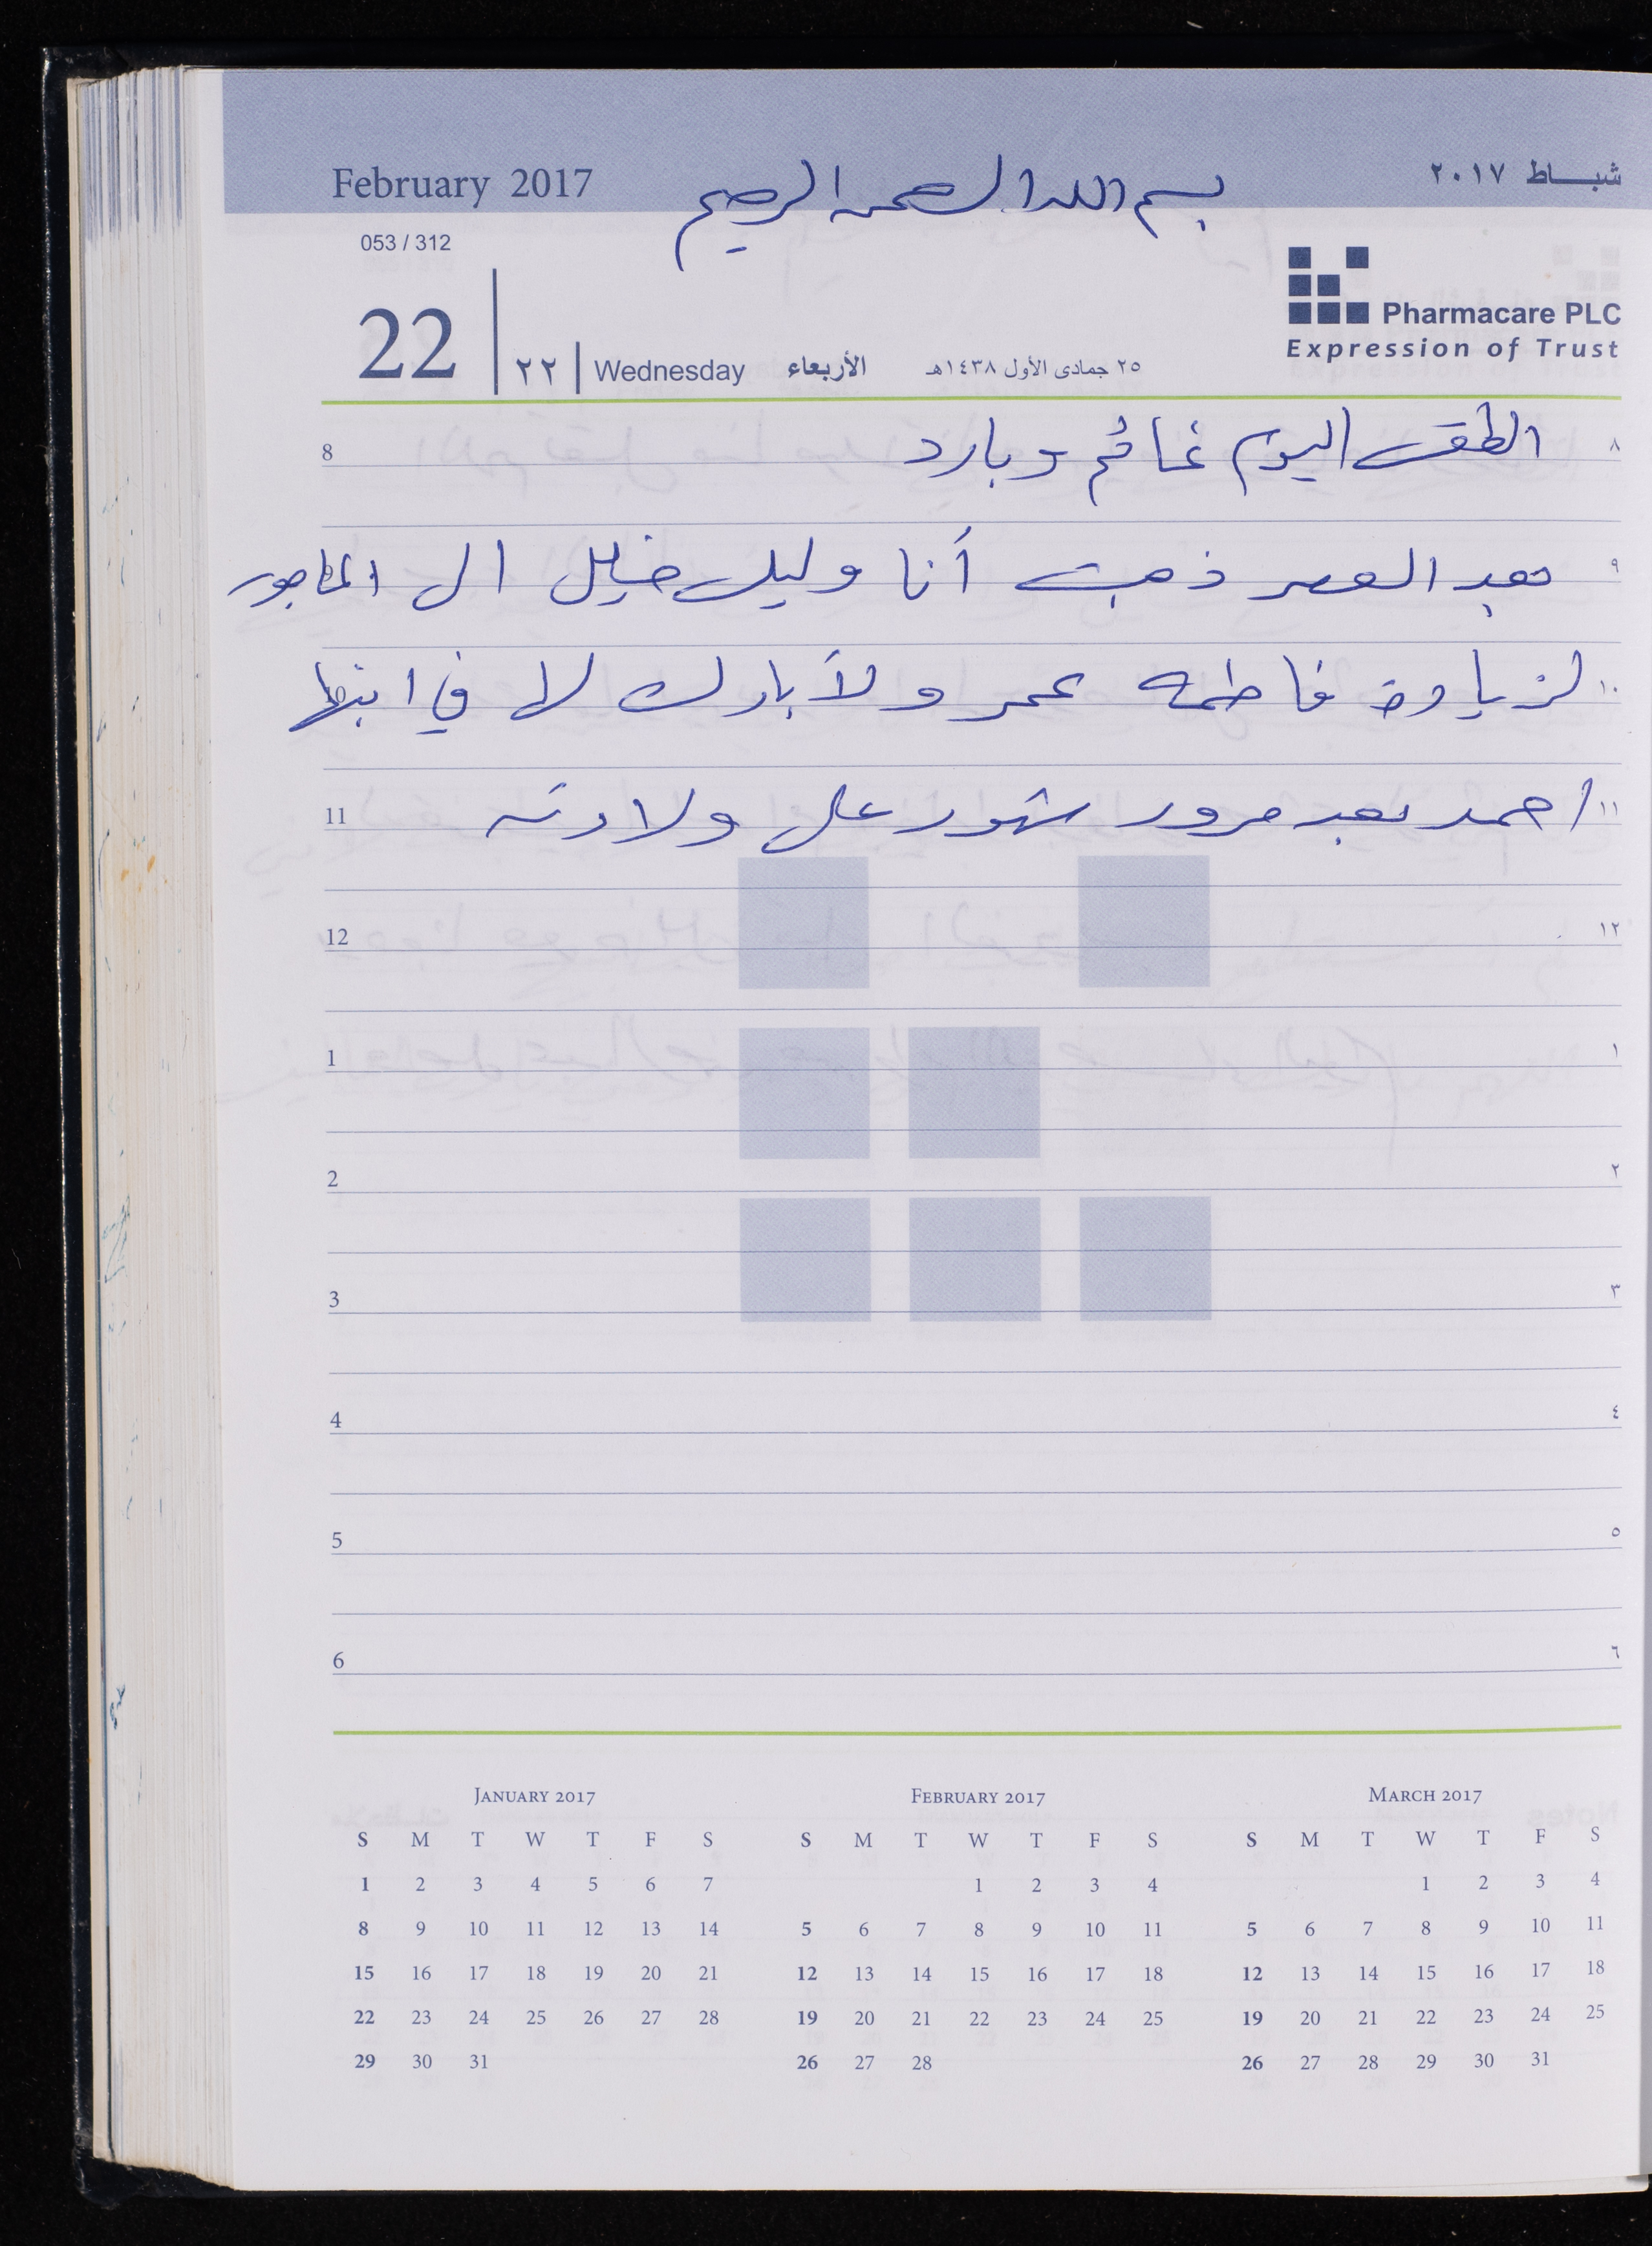 February 2017
بسم الله الرحمن الرحيم
شباط ٢٠١٧
053 / 312
22 ٢٢ Wednesday الأربعاء ٢٥ جمادى الأول ١٤٣٨هـ
Pharmacare PLC
Expression of Trust
8 الطقس اليوم غائم وبارد ٨
بعد العصر ذهبت أنا وليلى خليل الى الماجور ٩
لزيارة فاطمه عمر ولأبارك لها في ابنها ١٠
11 احمد بعد مرور شهور على ولادته ١١
12 ١٢
1 ١
2 ٢
3 ٣
4 ٤
5 ٥
6 ٦
JANUARY 2017
S M T W T F S
1 2 3 4 5 6 7
8 9 10 11 12 13 14
15 16 17 18 19 20 21
22 23 24 25 26 27 28
29 30 31
FEBRUARY 2017
S M T W T F S
1 2 3 4
5 6 7 8 9 10 11
12 13 14 15 16 17 18
19 20 21 22 23 24 25
26 27 28
MARCH 2017
S M T W T F S
1 2 3 4
5 6 7 8 9 10 11
12 13 14 15 16 17 18
19 20 21 22 23 24 25
26 27 28 29 30 31